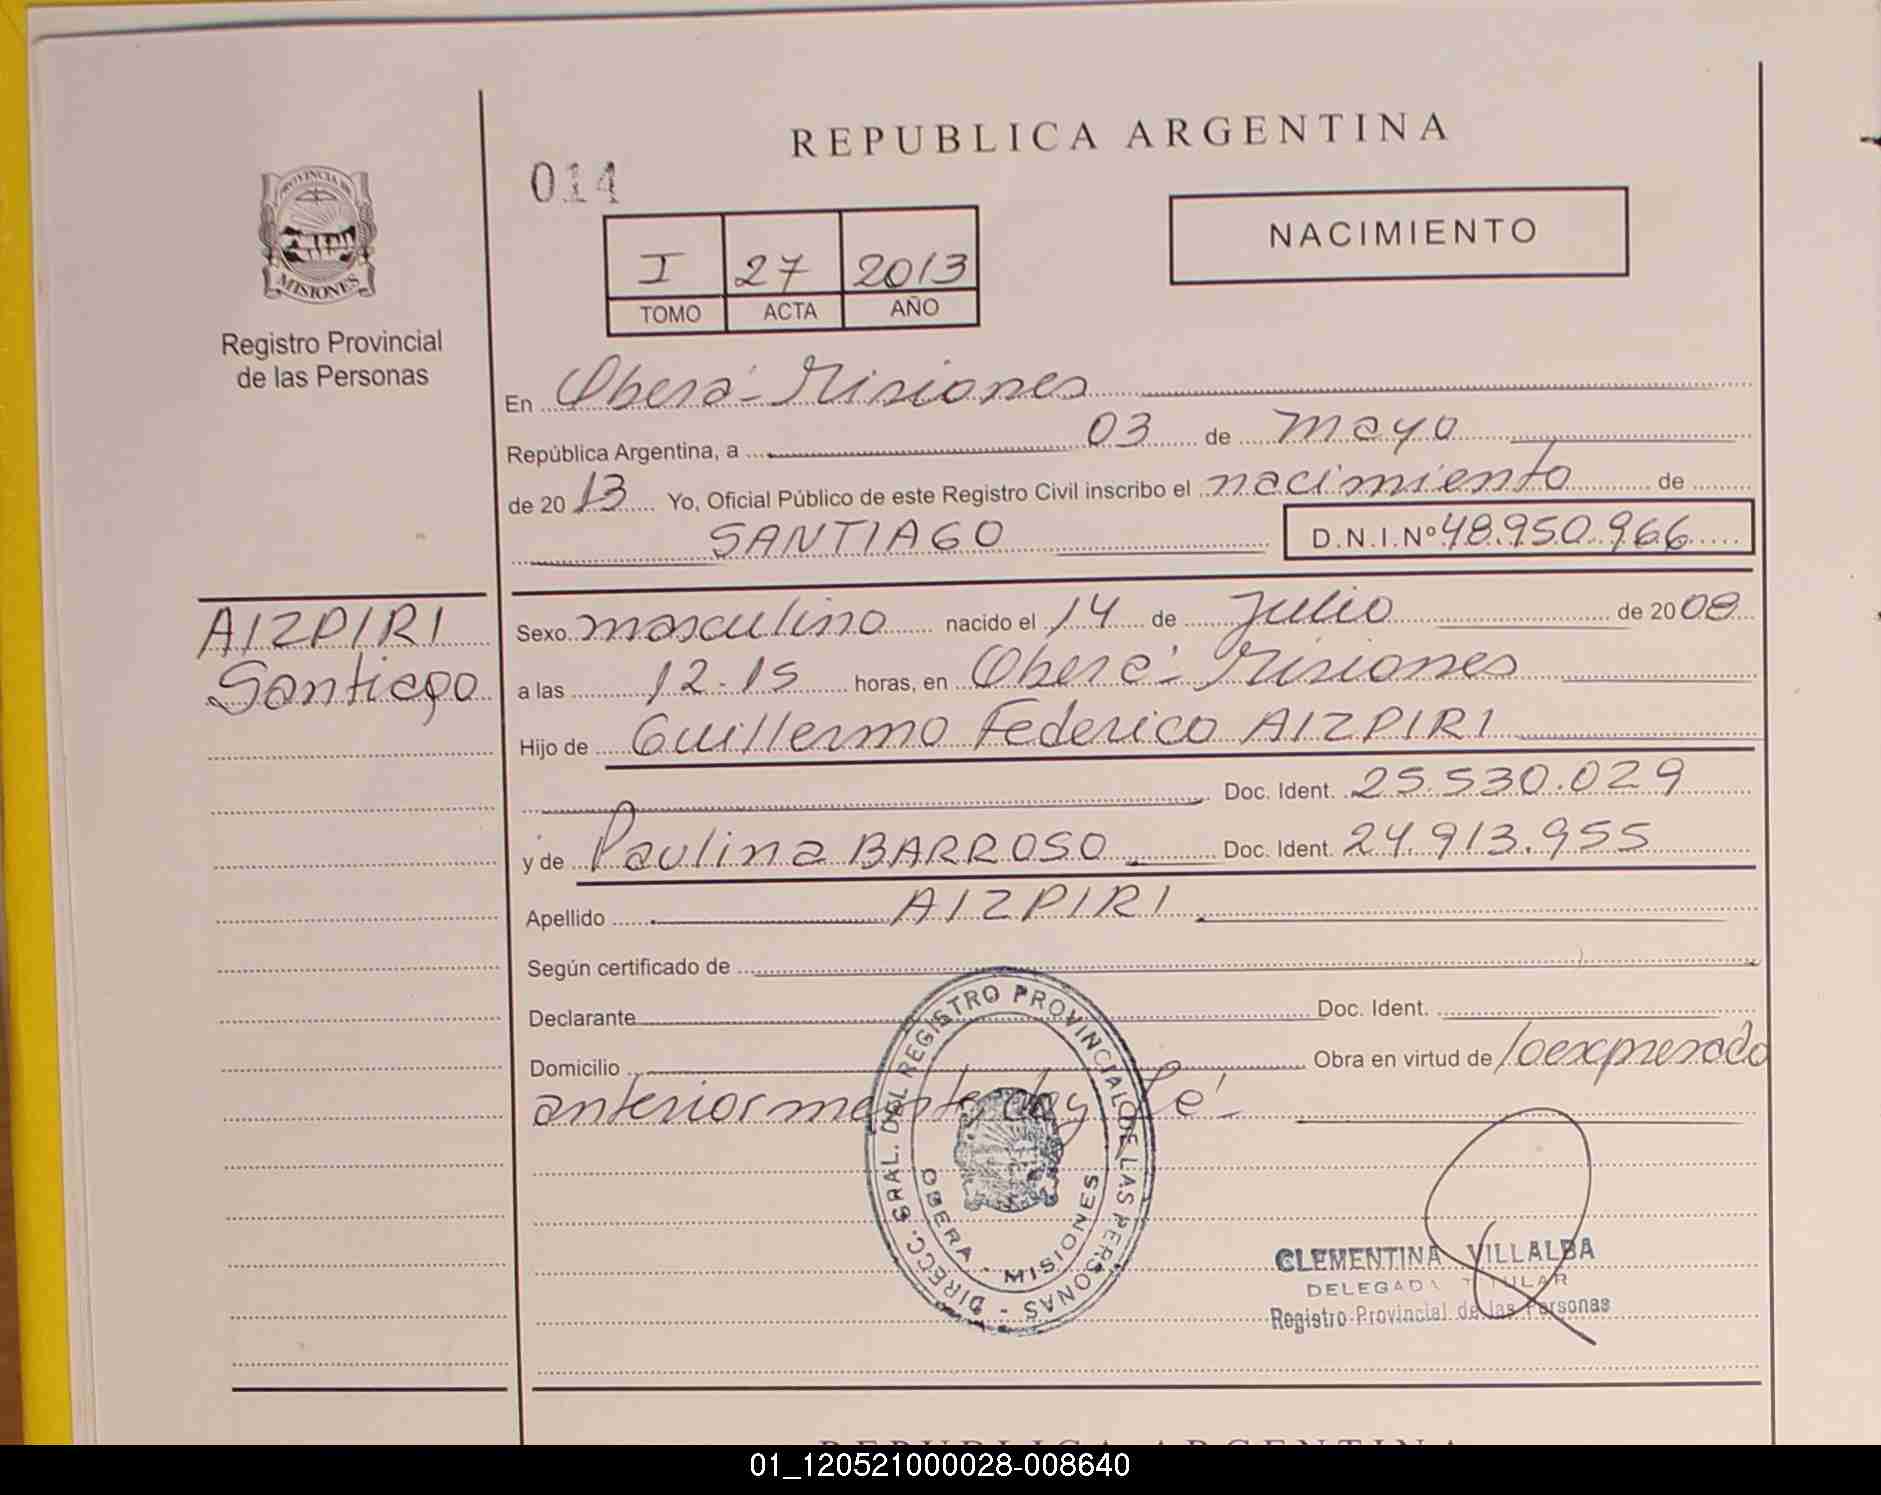 REPUBLICA ARGENTINA
014
NACIMIENTO
PROVINCIA DE
MISIONES
I 27 2013
TOMO ACTA AÑO
Registro Provincial
de las Personas
En Oberá - Misiones
República Argentina, a 03 de mayo
de 2013 Yo, Oficial Público de este Registro Civil inscribo el nacimiento de
SANTIAGO D.N.I.Nº 48.950.966
AIZPIRI
Santiago
Sexo masculino nacido el 14 de Julio de 2008
a las 12.15 horas, en Oberá - Misiones
Hijo de Guillermo Federico AIZPIRI
Doc. Ident. 25.530.029
y de Paulina BARROSO Doc. Ident. 24.913.955
Apellido AIZPIRI
Según certificado de
Declarante Doc. Ident.
Domicilio Obra en virtud de lo expresado
anteriormente doy Fé
DIRECC. GRAL. DEL REGISTRO PROVINCIAL DE LAS PERSONAS
OBERA - MISIONES
CLEMENTINA VILLALBA
DELEGADA TITULAR
Registro Provincial de las Personas
REPUBLICA ARGENTINA
01_120521000028-008640